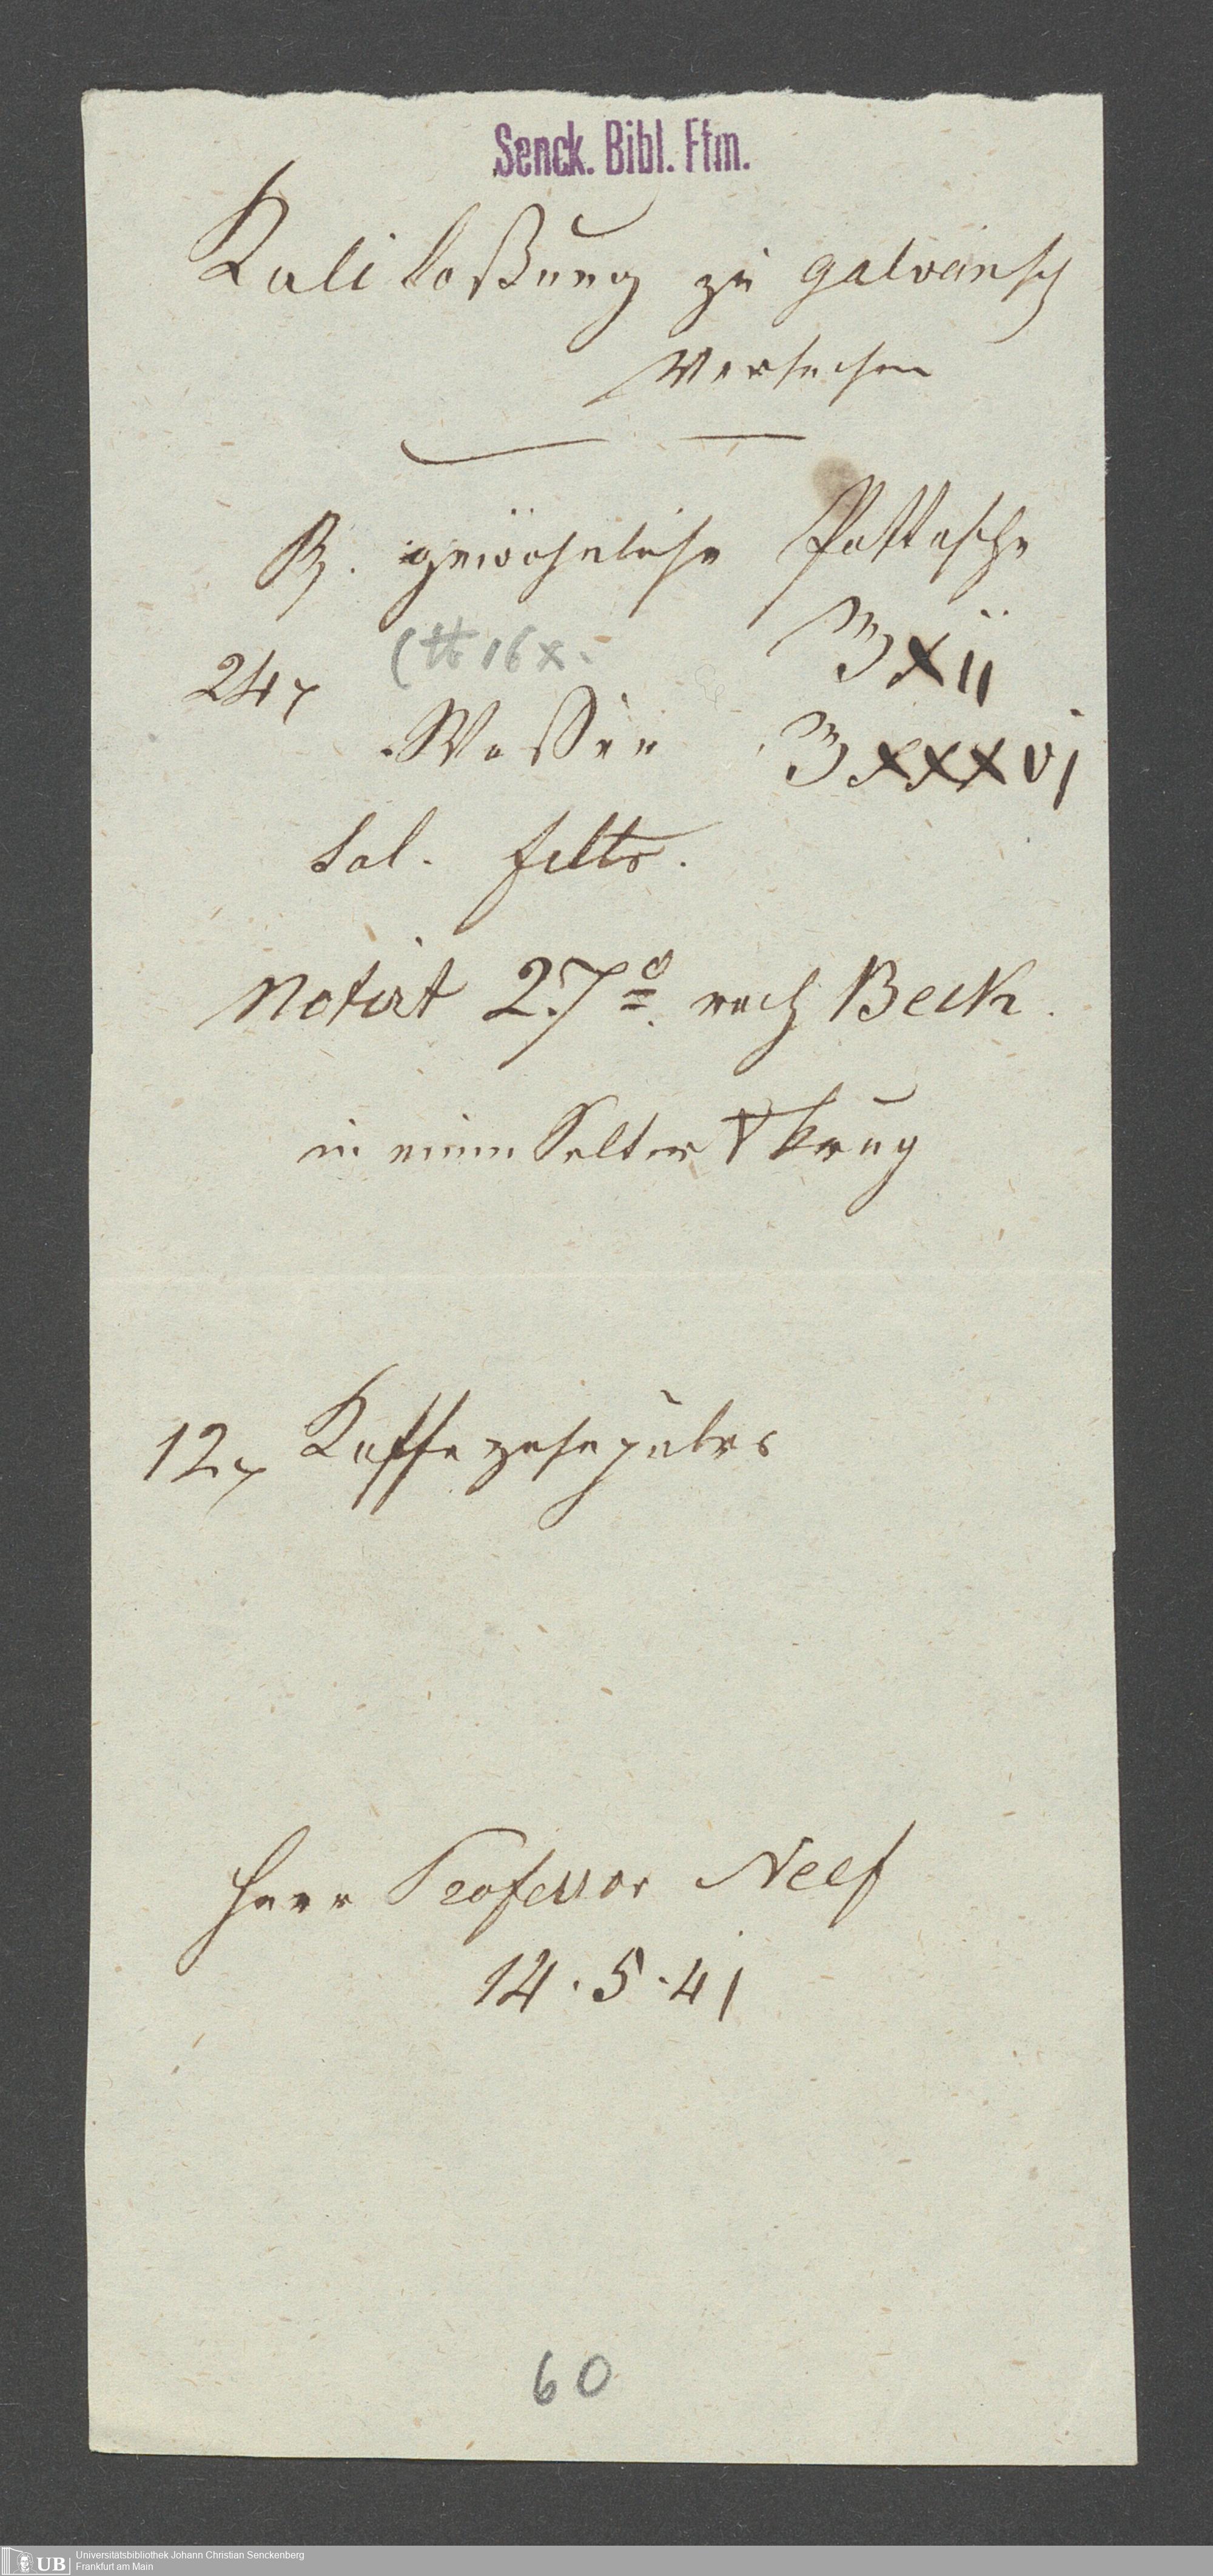 Senck. Bibl. Ffm.
Kali Loßung zu galvanisch
Versuchen
℞. gewöhnliche Pottasche
℥ xii
24x
(℔ 16 x.
Wasser ℥ xxxvi
Sol. filtr.
Notirt 27° nach Beck.
in einem Selter krug
12x Kaffe
Herr Professor Neef
14. 5. 41
60
UB Universitätsbibliothek Johann Christian Senckenberg
Frankfurt am Main